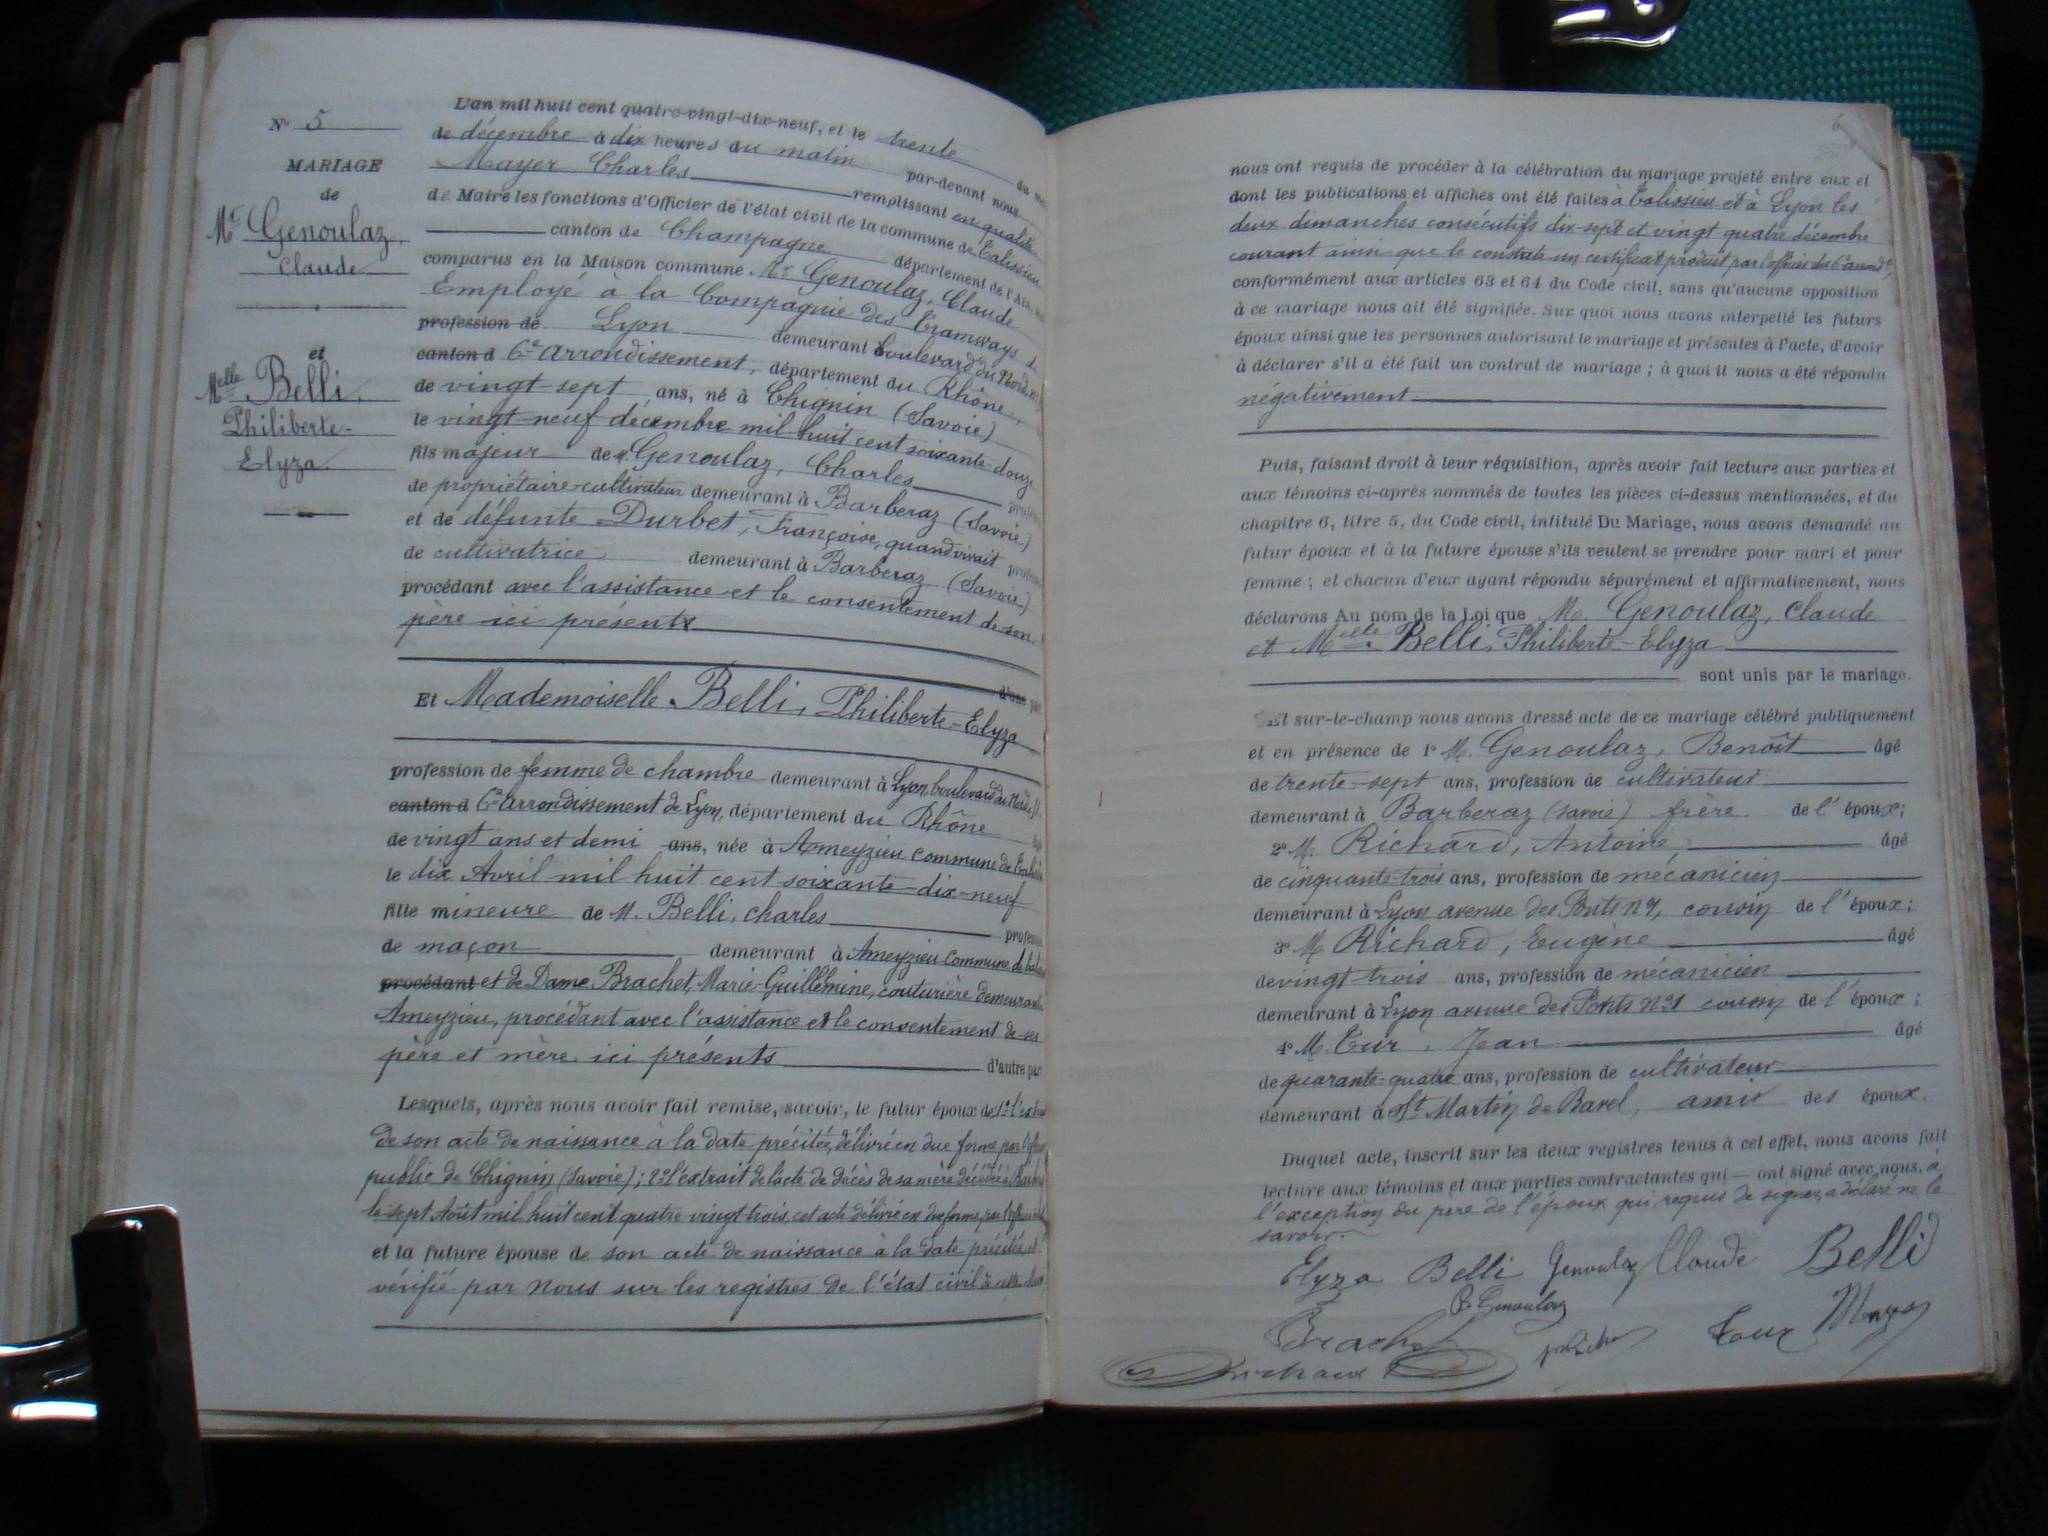 N° 5
MARIAGE
de
Mr. Genoulaz,
Claude
et
Melle Belli,
Philiberte-
Elyza.
L'an mil huit cent quatre-vingt-dix-neuf, et le trente du
de décembre à dix heures du matin par-devant nous
Mayer Charles remplissant en qualité
de Maire les fonctions d'Officier de l'état civil de la commune de Talissieu
canton de Champagne département de l'Ain
comparus en la Maison commune Mr Genoulaz, Claude
Employé à la Compagnie des Tramways de
profession de Lyon demeurant boulevard du Nord
canton d 6e arrondissement, département du Rhône,
de vingt sept ans, né à Chignin (Savoie)
le vingt-neuf décembre mil huit cent soixante-douze
fils majeur de Genoulaz, Charles
de propriétaire-cultivateur demeurant à Barberaz (Savoie)
et de défunte Durbet, Françoise, quand vivait
de cultivatrice demeurant à Barberaz (Savoie)
procédant avec l'assistance et le consentement de son
père ici présent
d'une part
Et Mademoiselle Belli, Philiberte-Elyza
profession de femme de chambre demeurant à Lyon, boulevard du Nord
canton d 6e arrondissement de Lyon, département du Rhône
de vingt ans et demi ans, née à Ameyzieu commune de
le dix Avril mil huit cent soixante-dix-neuf
fille mineure de M. Belli, Charles
de maçon demeurant à Ameyzieu commune de
procédant et de Dame Brachet, Marie-Guillemine, couturière demeurant
Ameyzieu, procédant avec l'assistance et le consentement de ses
père et mère ici présents d'autre part
Lesquels, après nous avoir fait remise, savoir, le futur époux de 1° l'extrait
de son acte de naissance à la date précitée, délivré en due forme par
public de Chignin (Savoie); 2° l'extrait de l'acte de décès de sa mère décédée à
le sept Août mil huit cent quatre vingt trois, cet acte délivré en due forme par
et la future épouse de son acte de naissance à la date précitée, et
vérifié par nous sur les registres de l'état civil de cette
nous ont requis de procéder à la célébration du mariage projeté entre eux et
dont les publications et affiches ont été faites à Talissieu et à Lyon les
deux dimanches consécutifs dix-sept et vingt quatre décembre
courant ainsi que le constate un certificat produit par l'officier du 6e arrondt,
conformément aux articles 63 et 64 du Code civil, sans qu'aucune opposition
à ce mariage nous ait été signifiée. Sur quoi nous avons interpellé les futurs
époux ainsi que les personnes autorisant le mariage et présentes à l'acte, d'avoir
à déclarer s'il a été fait un contrat de mariage ; à quoi il nous a été répondu
négativement.
Puis, faisant droit à leur réquisition, après avoir fait lecture aux parties et
aux témoins ci-après nommés de toutes les pièces ci-dessus mentionnées, et du
chapitre 6, titre 5, du Code civil, intitulé Du Mariage, nous avons demandé au
futur époux et à la future épouse s'ils veulent se prendre pour mari et pour
femme ; et chacun d'eux ayant répondu séparément et affirmativement, nous
déclarons Au nom de la Loi que M. Genoulaz, Claude
et Melle Belli, Philiberte-Elyza
sont unis par le mariage.
Et sur-le-champ nous avons dressé acte de ce mariage célébré publiquement
et en présence de 1° M. Genoulaz, Benoît âgé
de trente-sept ans, profession de cultivateur
demeurant à Barberaz (Savoie) frère de l'époux;
2° M. Richard, Antoine, âgé
de cinquante-trois ans, profession de mécanicien
demeurant à Lyon avenue des Ponts cousin de l'époux;
3° M Richard, Eugène âgé
de vingt-trois ans, profession de mécanicien
demeurant à Lyon avenue des Ponts n°1 cousin de l'époux;
4° M. Tur, Jean âgé
de quarante-quatre ans, profession de cultivateur
demeurant à St Martin de Bavel, amis des époux.
Duquel acte, inscrit sur les deux registres tenus à cet effet, nous avons fait
lecture aux témoins et aux parties contractantes qui ont signé avec nous, à
l'exception du père de l'époux qui, requis de signer, a déclaré ne le
savoir.
Elyza Belli Genoulaz Claude Belli
B. Genoulaz
Brachet Tur Mayer
Richard